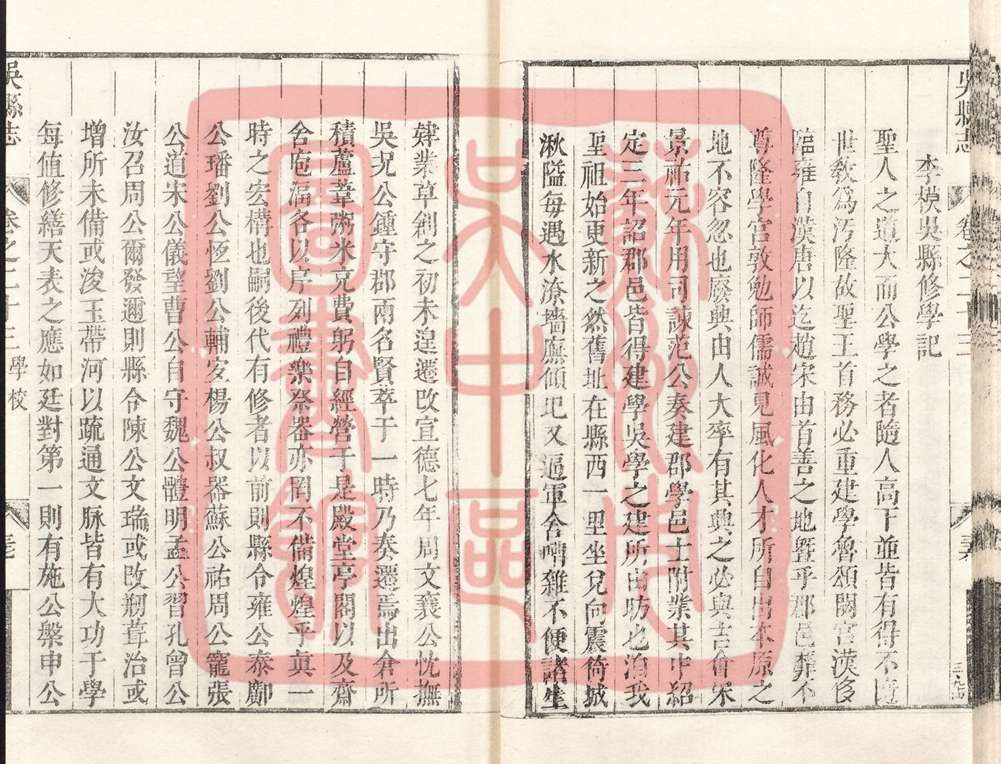 吳縣志 卷之二十三
李模吳縣修學記
聖人之道大而公學之者隨人高下並皆有得不隨
世敎爲汚隆故聖王首務必重建學魯頌閟宮漢侈
臨雍自漢唐以迄趙宋由首善之地曁乎郡邑靡不
尊隆學宮敦勉師儒誠見風化人才所自出本原之
地不容忽也廢興由人大率有其典之必與吉會宋
景祐元年用司諫范公奏建郡學邑士附業其中紹
定三年詔郡邑皆得建學吳學之建所由昉也洎我
聖祖始更新之然舊址在縣西一里坐兌向震倚城
湫隘每遇水潦墻廡傾圯又逼軍舍嘈雜不便諸生
肄業草創之初未遑遷改宣德七年周文襄公忱撫
吳况公鍾守郡兩名賢萃于一時乃奏遷焉出倉所
積蘆葦粥米充費躬自經營于是殿堂亭閣以及齋
舍庖湢各以序列禮樂祭器亦罔不備煌煌乎眞一
時之宏構也嗣後代有修者以前則縣令雍公泰鄺
公璠劉公恆劉公輔宐楊公叔器蘇公祐周公寵張
公道宋公儀望曹公自守魏公體明孟公習孔曾公
汝召周公爾發邇則縣令陳公文瑞或改剏葺治或
增所未備或浚玉帶河以疏通文脉皆有大功于學
每值修繕天表之應如廷對第一則有施公槃申公
吳縣志 卷之二十三 學校
蘇州市
吳中區
圖書館